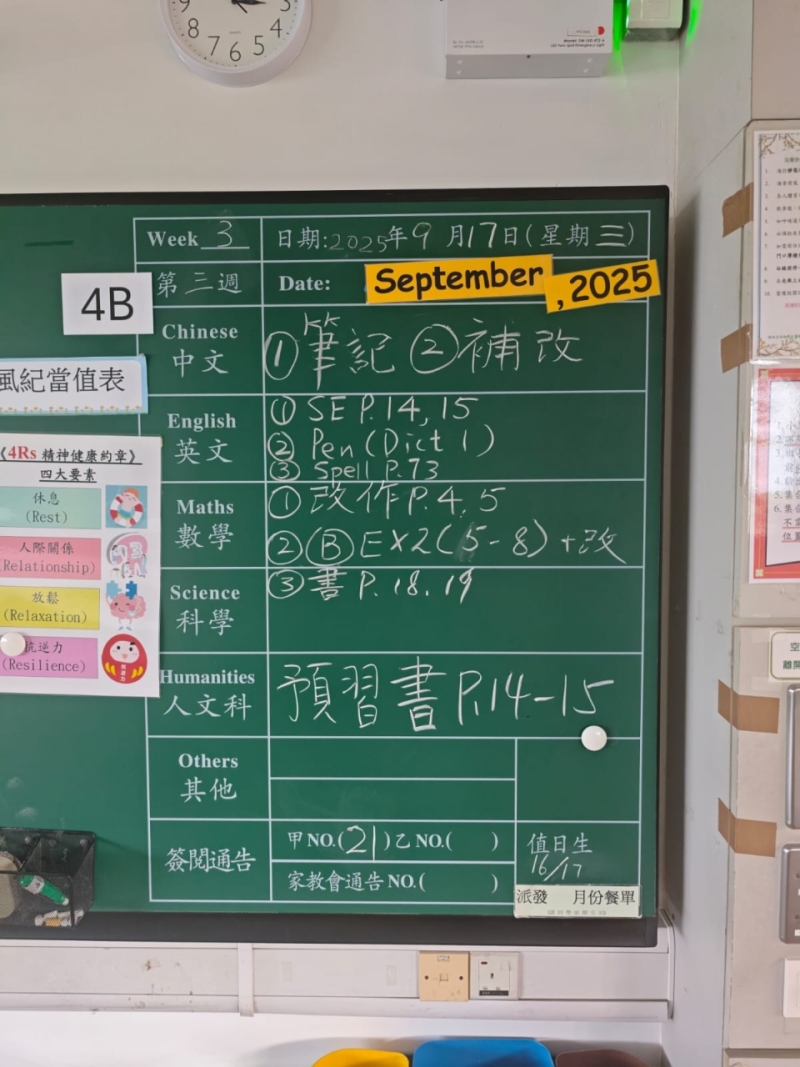 9 8 7 6 5 4
Week 3
日期:2025年9月17日(星期三)
第三週
Date:
September, 2025
4B
Chinese
中文
①筆記 ②補改
風紀當值表
English
英文
① SE P.14, 15
② Pen (Dict 1)
③ Spell P.73
《4Rs 精神健康約章》
四大要素
休息
(Rest)
人際關係
(Relationship)
放鬆
(Relaxation)
抗逆力
(Resilience)
Maths
數學
① 改作 P.4, 5
② Ⓑ EX2(5-8)+改
Science
科學
③ 書 P.18.19
Humanities
人文科
預習書 P.14-15
Others
其他
簽閱通告
甲NO.(21)乙NO.( )
家教會通告NO.( )
值日生
16/17
派發 月份餐單